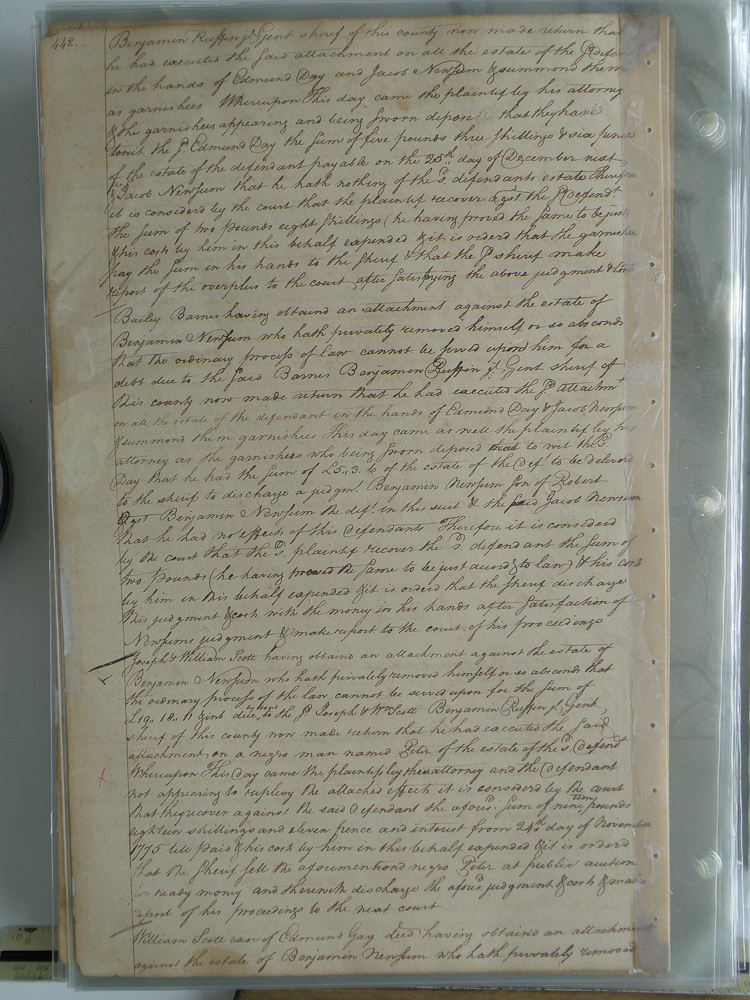 442..
Benjamin Ruffin jr Gent sherif of this county now made return that
he had executed the said attachment on all the estate of the sd defen
in the hands of Edmund Day and Jacob Newsum & summond them
as garnishees Whereupon This day came the plaintif by his attorny
& the garnishees appearing and being sworn depose that they have
towit the sd Edmund Day the sum of five pounds three shillings & six pence
of the estate of the defendant payable on the 25th day of December next
& Jacob Newsum that he hath nothing of the sd defendants estate Therefore
it is considerd by the court that the plaintif recover agst the sd Defendt
the sum of two pounds eight shillings (he having proved the same to be just
& his costs by him in this behalf expended & it is orderd that the garnishee
pay the sum in his hands to the sherif & that the sd sherif make
report of the overplus to the court after satisfying the above judgment & Costs
Bailey Barnes having obtaind an attachment against the estate of
Benjamin Newsum who hath privately removed himself or so absconds
that the ordinary process of law cannot be served upon him for a
debt due to the said Barnes Benjamin Ruffin jr Gent sherif of
this county now made return that he had executed the sd attachmt
on all the estate of the defendant in the hands of Edmund Day & Jacob Newsum
& summond them garnishees This day came as well the plaintif by his
attorney as the garnishees who being sworn deposed to wit the sd
Day that he had the sum of £5, 3. 6 of the estate of the Deft to be deliverd
to the sherif to discharge a judgmt Benjamin Newsum son of Robert
Agst Benjamin Newsum the deft in this suit & the said Jacob Newsum
that he had no effects of this Defendants Therefore it is considerd
by the court that the sd plaintif recover the sd defendant the sum of
two pounds (he having proved the same to be just accordg to law) & his costs
by him in this behalf expended & it is orderd that the sherif discharge
this judgment & costs with the money in his hands after satisfaction of
Newsums judgment & make report to the court of his proceedings
Joseph & William Scott having obtaind an attachment against the estate of
Benjamin Newsum who hath privately removed himself or so absconds that
the ordinary process of the law cannot be served upon for the sum of
£19. 18. 11 & int due to the sd Joseph & Wm Scott Benjamin Ruffin jr Gent
sherif of this county now made return that he had executed the said
attachment on a negro man named Peter of the estate of the sd Defendt
Whereupon This Day came the plaintifs by their attorney and the Defendant
not appearing to replevy the attached effects it is considerd by the court
that they recover against the said defendant the aforesd sum of nineteen pounds
eighteen shillings and eleven pence and interest from 24th day of November
1775 till paid & his costs by him in this behalf expended & it is orderd
that the sherif sell the aforementiond negro Peter at public auction
for ready money and therewith discharge the aforesd judgment & costs & make
report of his proceedings to the next court
William Scott exor of Edmund Gay Decd having obtaind an attachmen
against the estate of Benjamin Newsum who hath privately removed